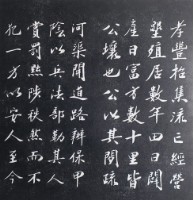 孝豐招集流亡經營
墾殖居數年田日闢
產日富方數十里皆
公壤也公以其間疏
河渠開道路辦保甲
陰以兵法部勒其人
賞罰黜陟秩然而不
犯一方以安人至今